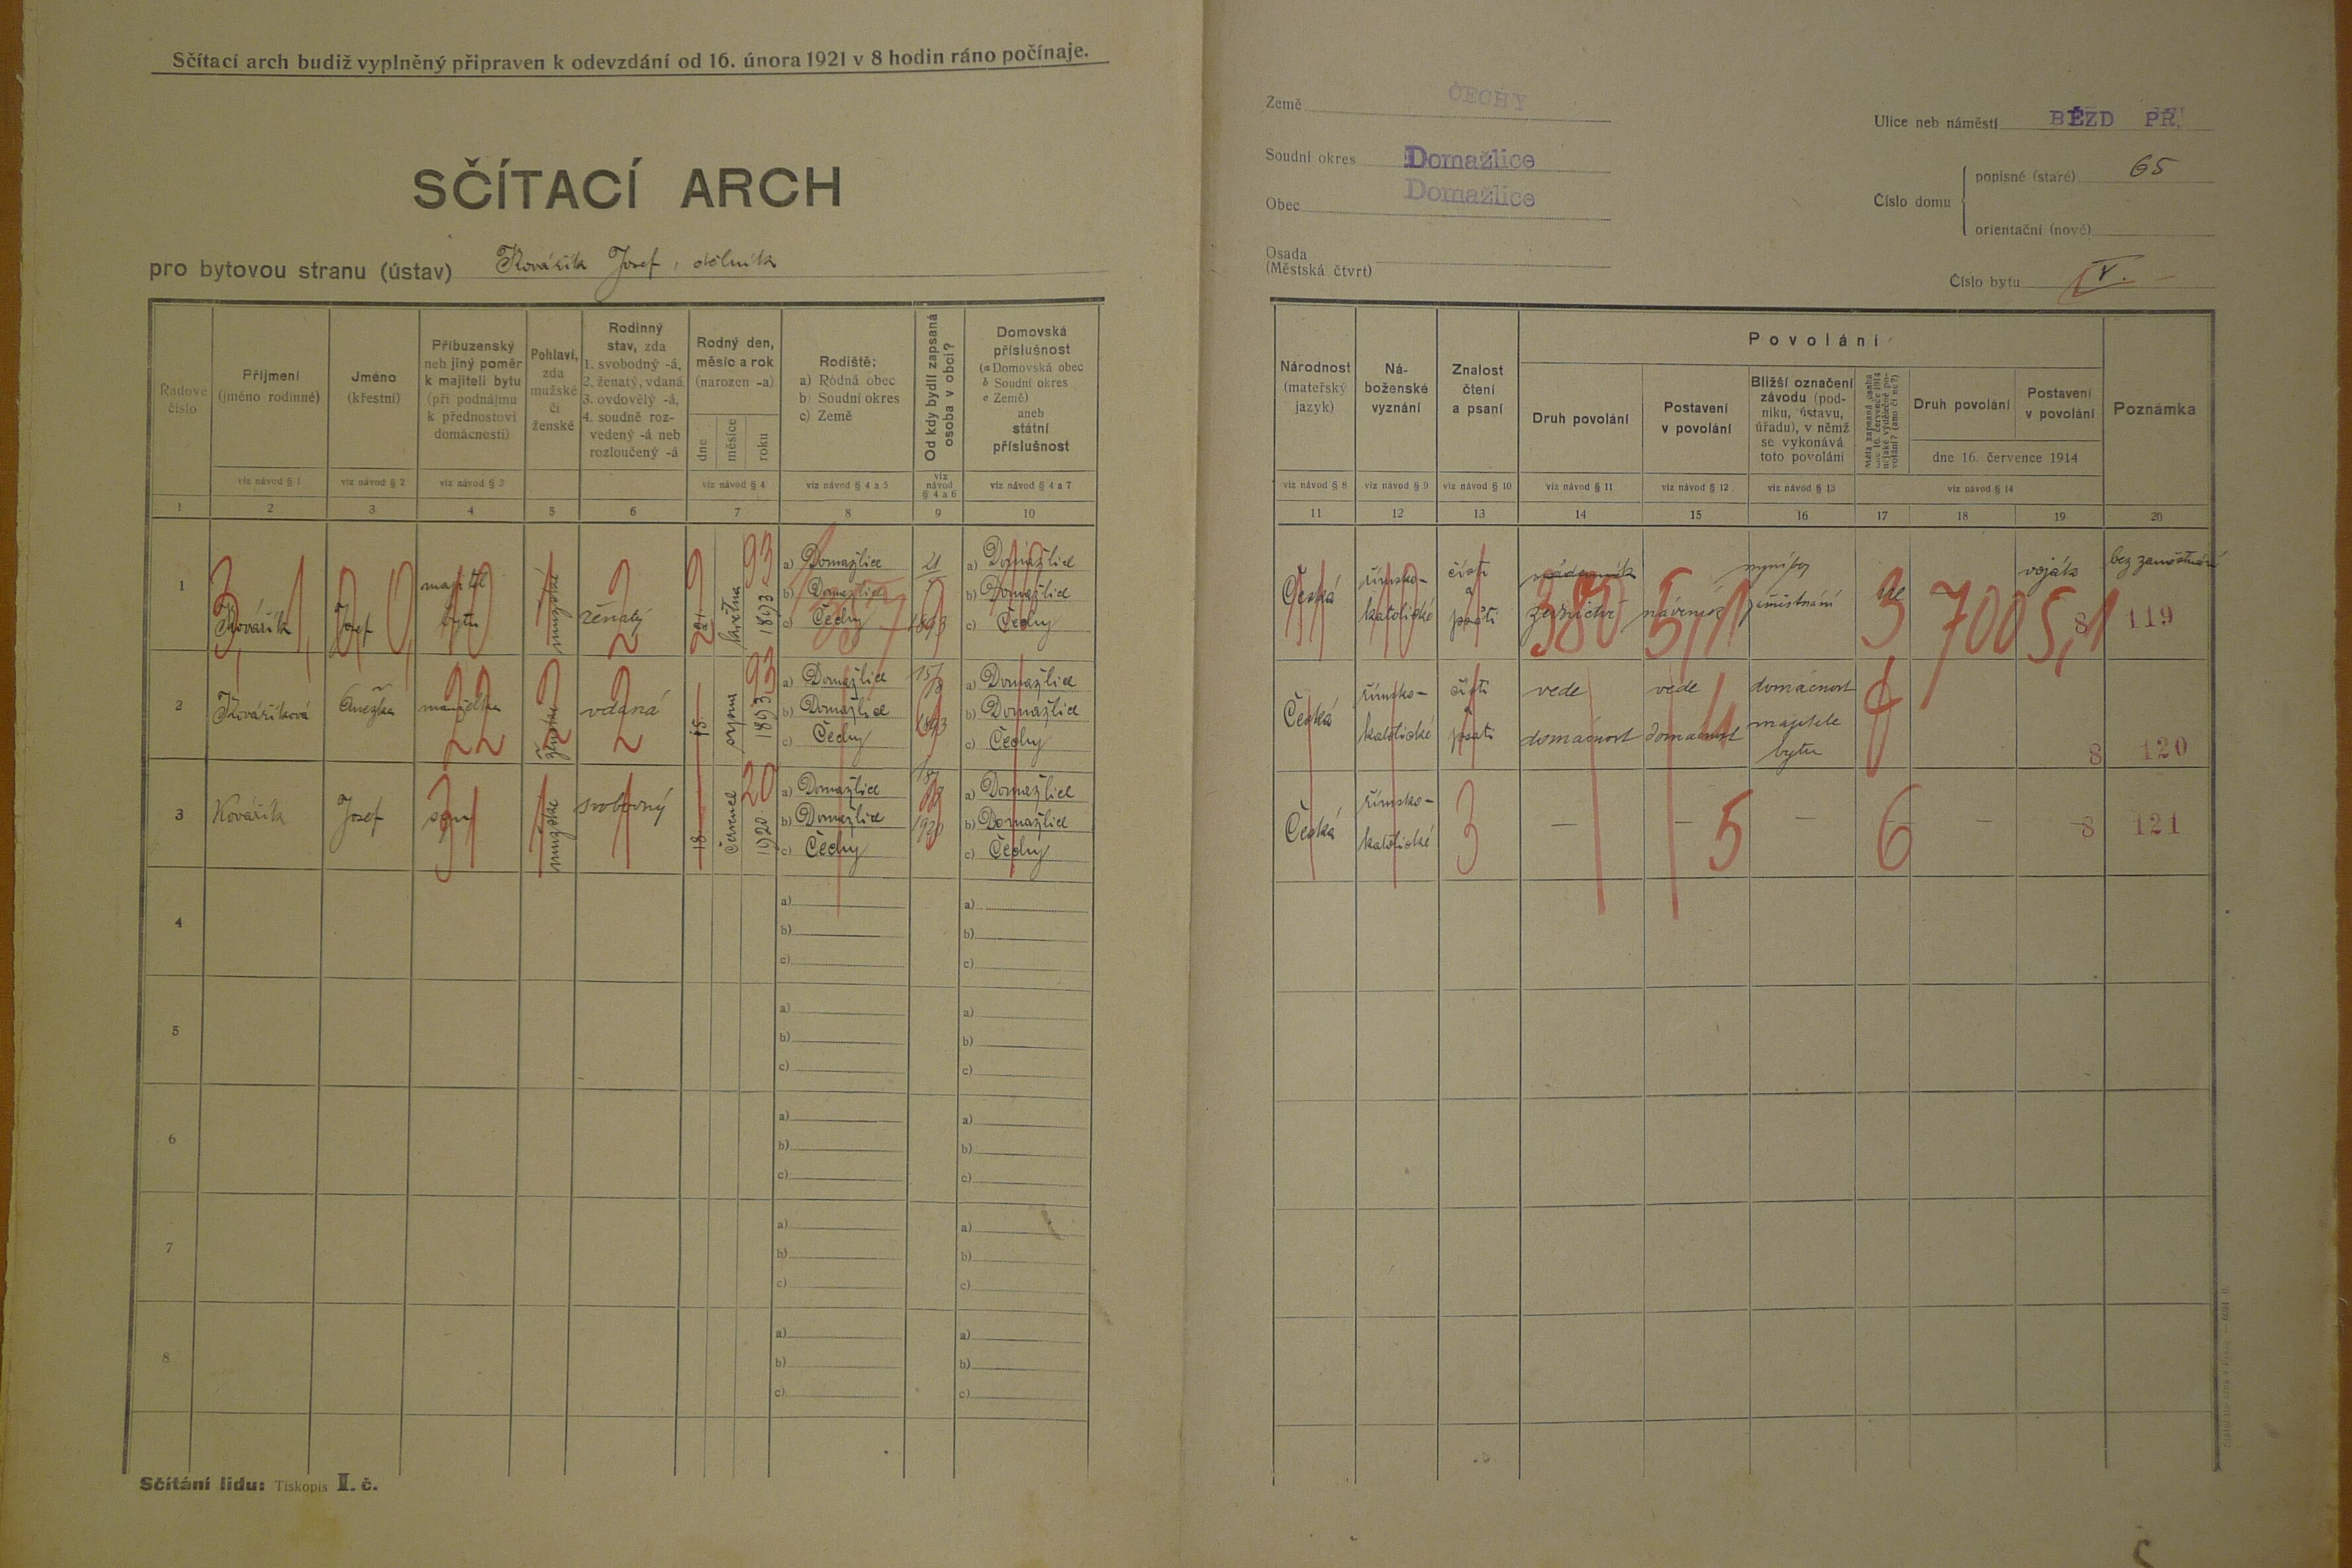 Sčítací arch budiž vyplněný připraven k odevzdání od 16. února 1921 v 8 hodin ráno počínaje.
SČÍTACÍ ARCH
pro bytovou stranu (ústav) Kovářík Josef, dělník
Řadové číslo
Příjmení (jméno rodinné)
Jméno (křestní)
Příbuzenský neb jiný poměr k majiteli bytu (při podnájmu k přednostovi domácnosti)
Pohlaví, zda mužské či ženské
Rodinný stav, zda 1. svobodný -á, 2. ženatý, vdaná 3. ovdovělý -á, 4. soudně rozvedený -á neb rozloučený -á
Rodný den, měsíc a rok (narozen -a)
dne měsíce roku
Rodiště: a) Rodná obec b) Soudní okres c) Země
Od kdy bydlí zapsaná osoba v obci?
Domovská příslušnost (a Domovská obec b Soudní okres c Země) aneb státní příslušnost
viz návod § 1
viz návod § 2
viz návod § 3
viz návod § 4
viz návod § 4 a 5
viz návod § 4 a 6
viz návod § 4 a 7
1 2 3 4 5 6 7 8 9 10
1 Kovářík Josef majitel bytu mužské ženatý 21. května 1893 93
a) Domažlice
b) Domažlice
c) Čechy
21 1893
a) Domažlice
b) Domažlice
c) Čechy
2 Kováříková Anežka manželka ženské vdaná 15. srpna 1893 93
a) Domažlice
b) Domažlice
c) Čechy
15/8 1893
a) Domažlice
b) Domažlice
c) Čechy
3 Kovářík Josef syn mužské svobodný 18. červenec 1920 20
a) Domažlice
b) Domažlice
c) Čechy
1920
a) Domažlice
b) Domažlice
c) Čechy
4 a) b) c) a) b) c)
5 a) b) c) a) b) c)
6 a) b) c) a) b) c)
7 a) b) c) a) b) c)
8 a) b) c) a) b) c)
Sčítání lidu: Tiskopis II. č.
Země ČECHY
Soudní okres Domažlice
Obec Domažlice
Osada (Městská čtvrt)
Ulice neb náměstí BĚZD PŘ.
Číslo domu
popisné (staré) 65
orientační (nové)
Číslo bytu V.
Národnost (mateřský jazyk)
Náboženské vyznání
Znalost čtení a psaní
Povolání
Druh povolání
Postavení v povolání
Bližší označení závodu (podniku, ústavu, úřadu), v němž se vykonává toto povolání
Měla zapsaná osoba dne 16. července 1914 nějaké výdělečné povolání? (ano či ne?)
Druh povolání
Postavení v povolání
dne 16. července 1914
Poznámka
viz návod § 8
viz návod § 9
viz návod § 10
viz návod § 11
viz návod § 12
viz návod § 13
viz návod § 14
11 12 13 14 15 16 17 18 19 20
Česká římsko-katolické čísti a psáti zednictví nyní bez zaměstnání Ne voják bez zaměstnání
380 5,1 3 700 5,1 8 119
Česká římsko-katolické čísti a psáti vede domácnost vede domácnost domácnost majitele bytu
8 120
Česká římsko-katolické 3 — — 5 — 6 — 8 121